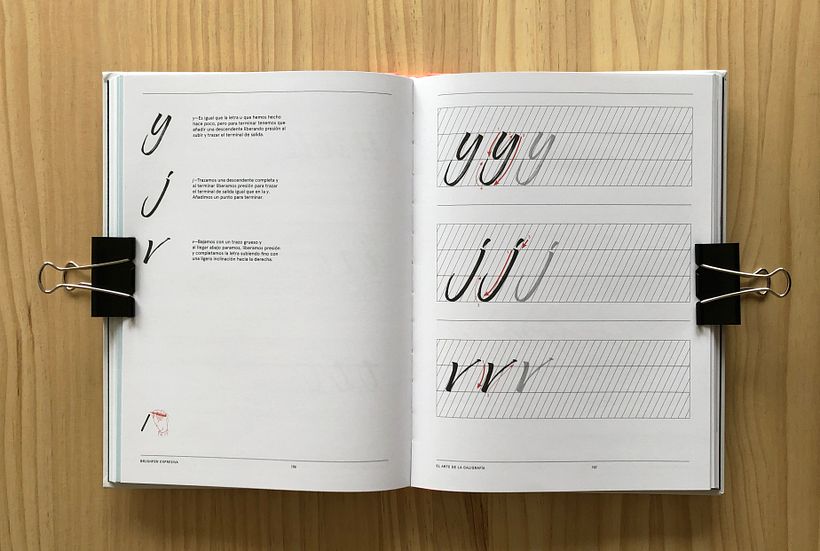 y
y—Es igual que la letra u que hemos hecho
hace poco, pero para terminar tenemos que
añadir una descendente liberando presión al
subir y trazar el terminal de salida.
j
j—Trazamos una descendente completa y
al terminar liberamos presión para trazar
el terminal de salida igual que en la y.
Añadimos un punto para terminar.
v
v—Bajamos con un trazo grueso y
al llegar abajo paramos, liberamos presión
y completamos la letra subiendo fino con
una ligera inclinación hacia la derecha.
BRUSHPEN EXPRESIVA
y y y
j j j
v v v
EL ARTE DE LA CALIGRAFÍA